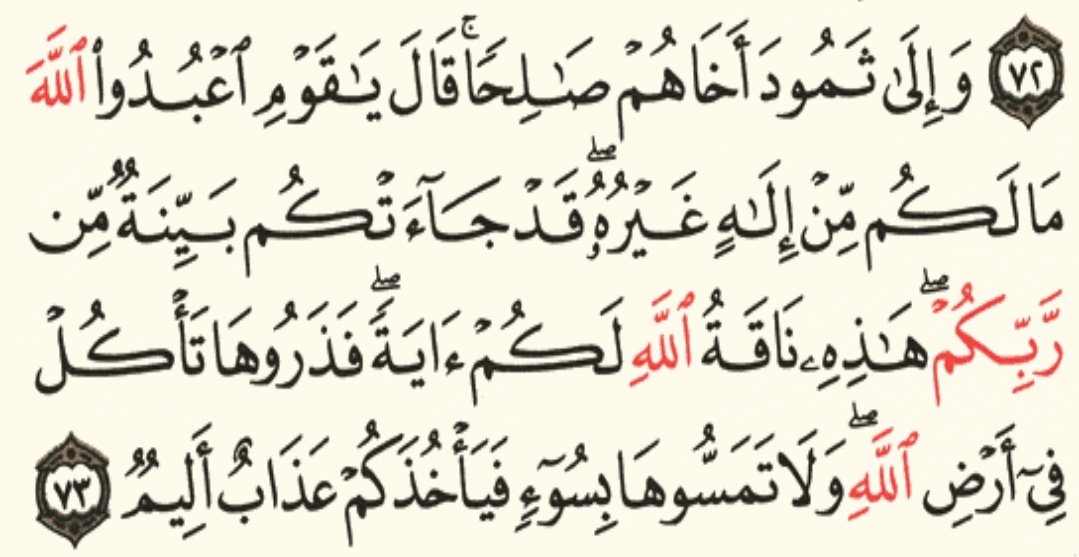 ٧٢ وَإِلَىٰ ثَمُودَ أَخَاهُمْ صَـٰلِحًاۚ قَالَ يَـٰقَوْمِ ٱعْبُدُوا۟ ٱللَّهَ
مَا لَكُم مِّنْ إِلَـٰهٍ غَيْرُهُۥۖ قَدْ جَآءَتْكُم بَيِّنَةٌ مِّن
رَّبِّكُمْۖ هَـٰذِهِۦ نَاقَةُ ٱللَّهِ لَكُمْ ءَايَةًۖ فَذَرُوهَا تَأْكُلْ
فِىٓ أَرْضِ ٱللَّهِۖ وَلَا تَمَسُّوهَا بِسُوٓءٍ فَيَأْخُذَكُمْ عَذَابٌ أَلِيمٌ ٧٣